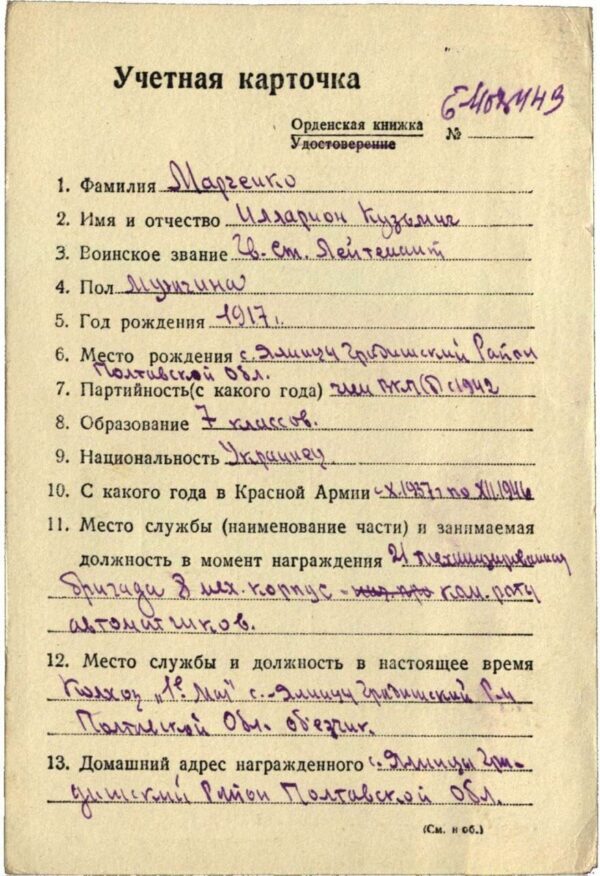 Учетная карточка
Орденская книжка
Удостоверение
№ Б 449
1. Фамилия Марченко
2. Имя и отчество Илларион Кузьмич
3. Воинское звание Гв. Ст. Лейтенант
4. Пол Мужчина
5. Год рождения 1917 г.
6. Место рождения с. Ялинцы Градижский Район
Полтавской Обл.
7. Партийность(с какого года) член ВКП(б) с 1942
8. Образование 7 классов.
9. Национальность Украинец
10. С какого года в Красной Армии с X.1937 г по XII.1946
11. Место службы (наименование части) и занимаемая
должность в момент награждения 21 механизированная
бригада 8 мех. корпус - ком. роты
автоматчиков.
12. Место службы и должность в настоящее время
Колхоз "1е Мая" с. Ялинцы Градижский Р-н
Полтавской Обл. объезчик.
13. Домашний адрес награжденного с. Ялинцы Гра-
дижский Район Полтавской Обл.
(См. н об.)